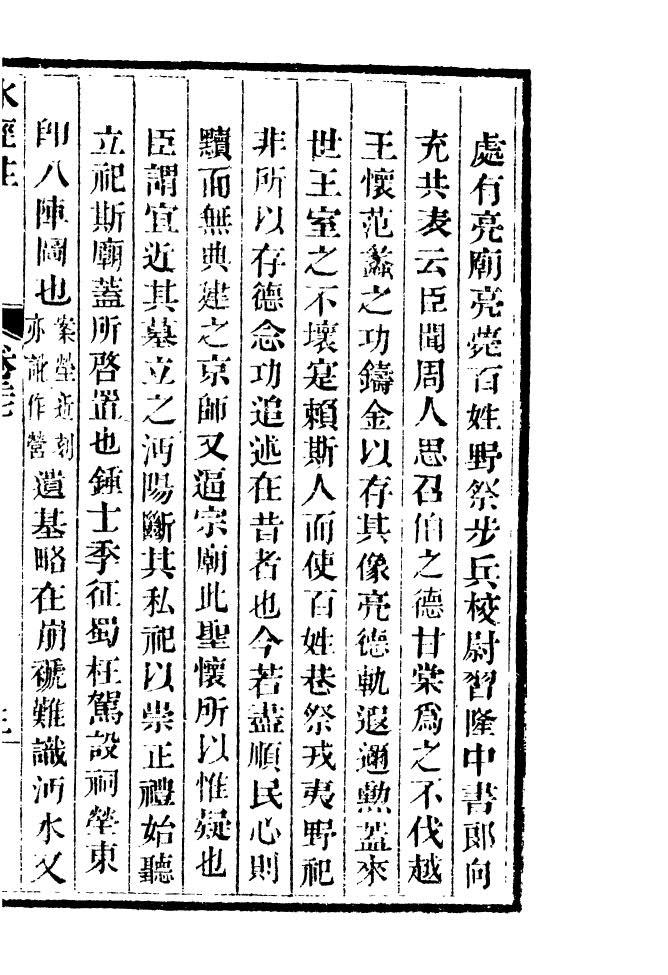 處有亮廟亮薨百姓野祭步兵校尉習隆中書郎向
充共表云臣聞周人思召伯之德甘棠爲之不伐越
王懷范蠡之功鑄金以存其像亮德軌遐邇勲葢來
世王室之不壞寔賴斯人而使百姓巷祭戎夷野祀
非所以存德念功追述在昔者也今若盡順民心則
黷而無典建之京師又逼宗廟此聖懷所以惟疑也
臣謂宜近其墓立之沔陽斷其私祀以崇正禮始聽
立祀斯廟蓋所啓置也鍾士季征蜀枉駕設祠塋東
卽八陣圖也案塋近刻亦訛作營遺基略在崩褫難識沔水又
水經注